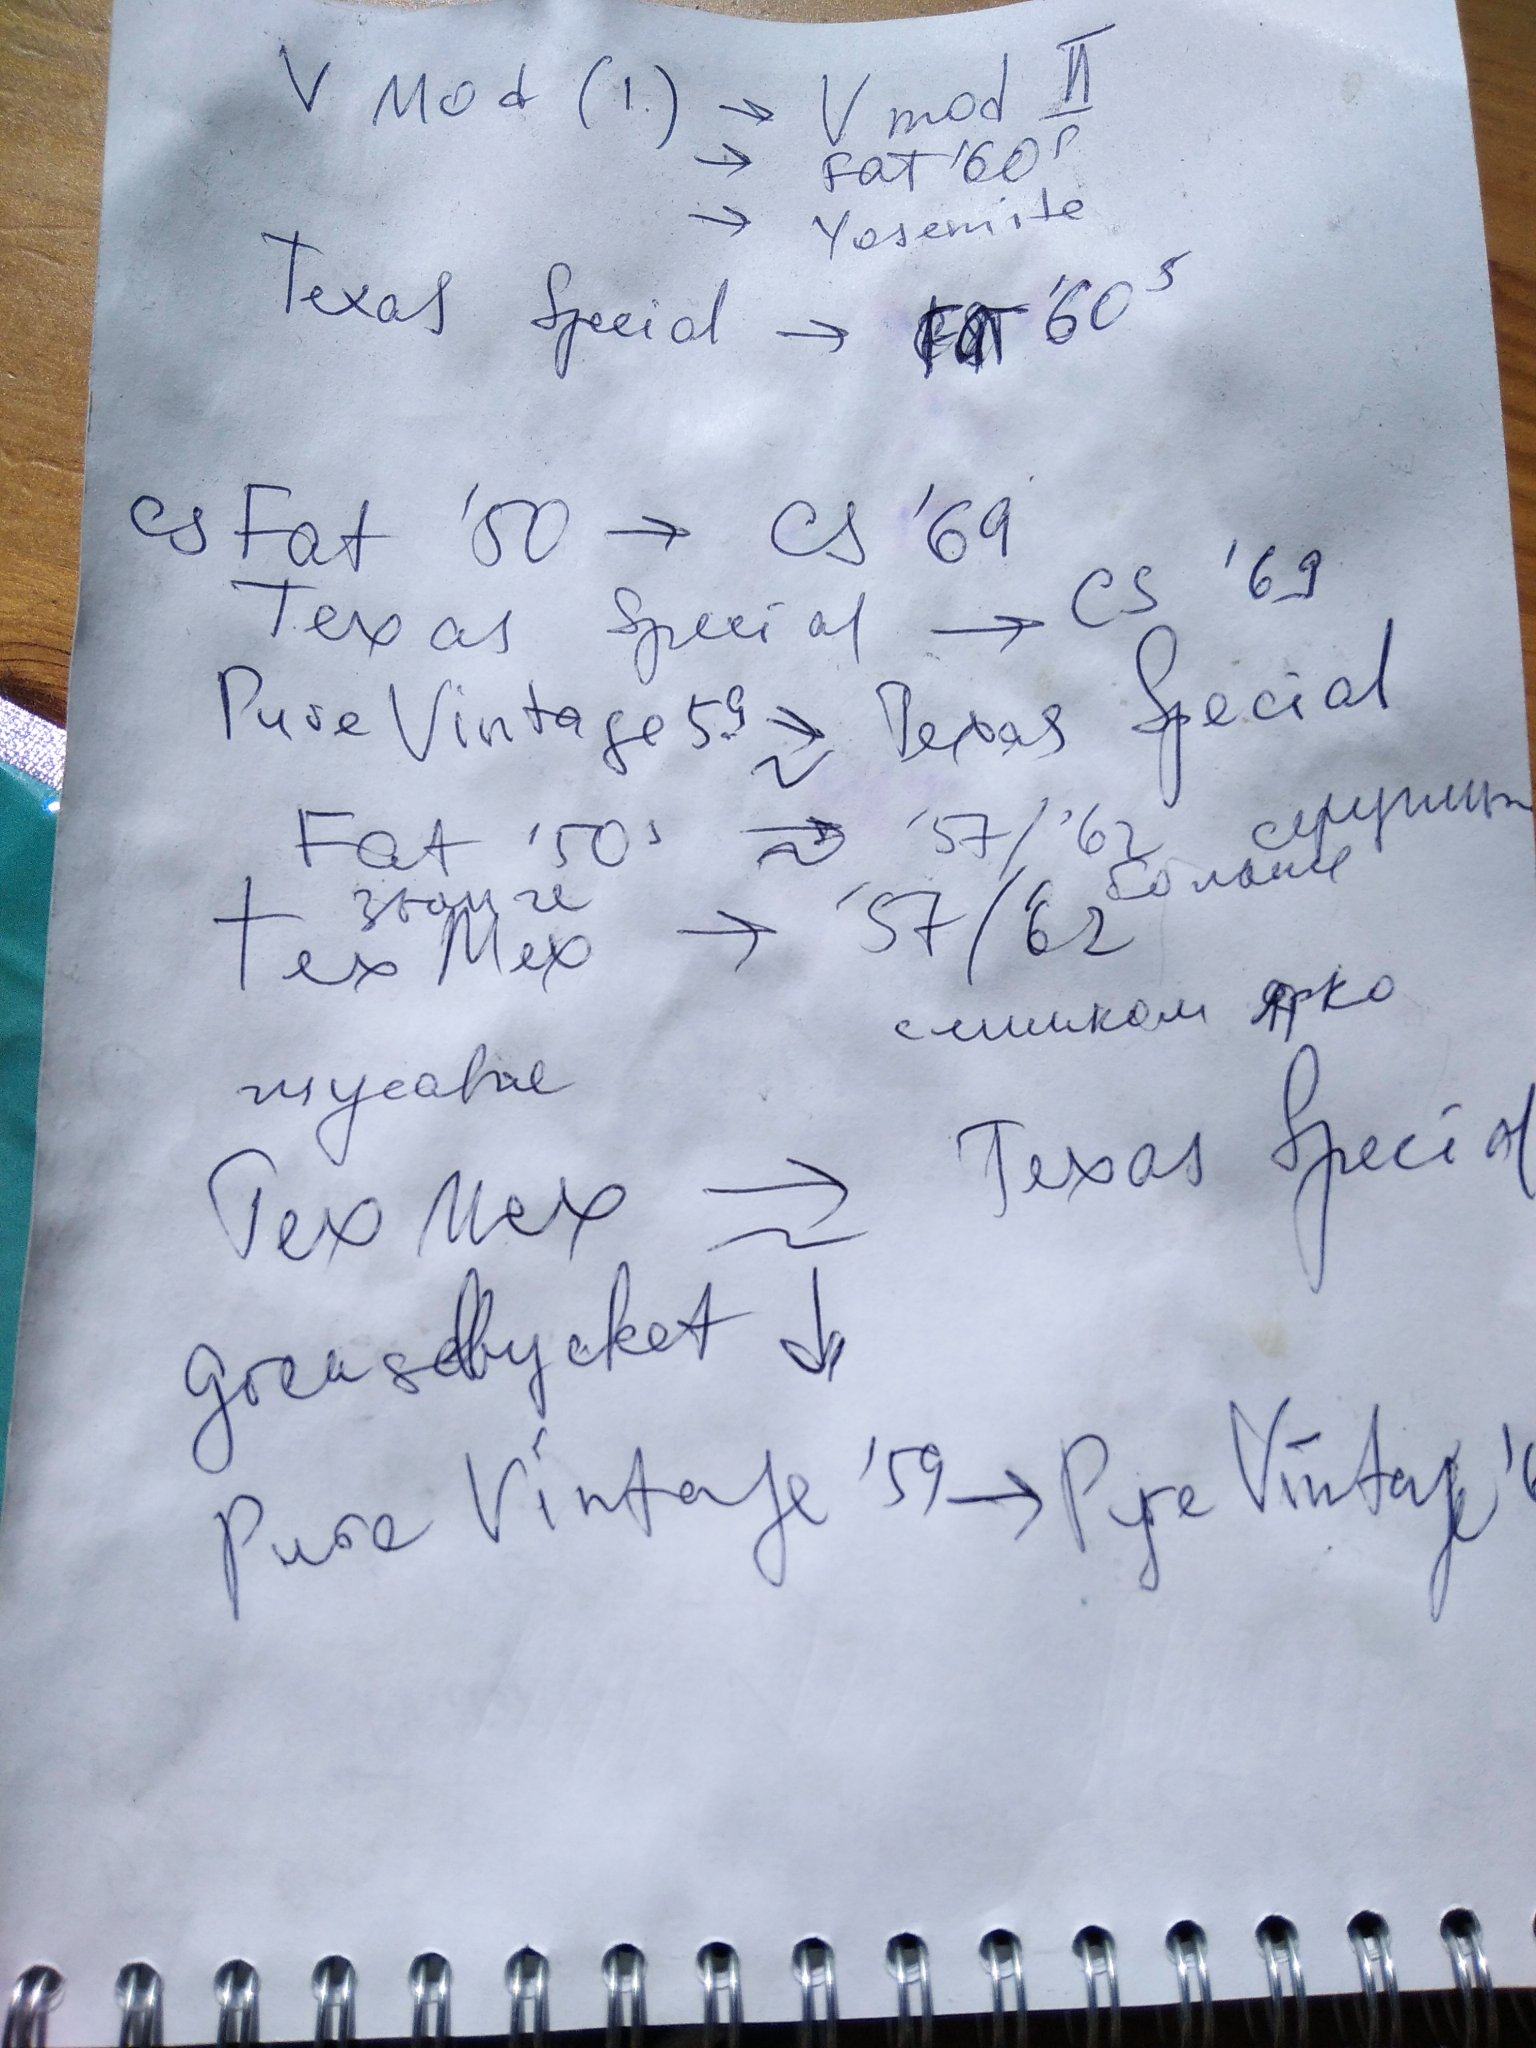 V Mod (1.) → V mod II
→ Fat '60s
→ Yosemite
Texas Special → FAT '60s
CS Fat '50 → CS '69
Texas Special → CS '69
Pure Vintage 59 → Texas Special
Fat '50s → '57/'62
звонче больше
Tex Mex → '57/'62
слишком ярко
Tex Mex → Texas Special
Greasebucket ↓
Pure Vintage '59 → Pure Vintage '6